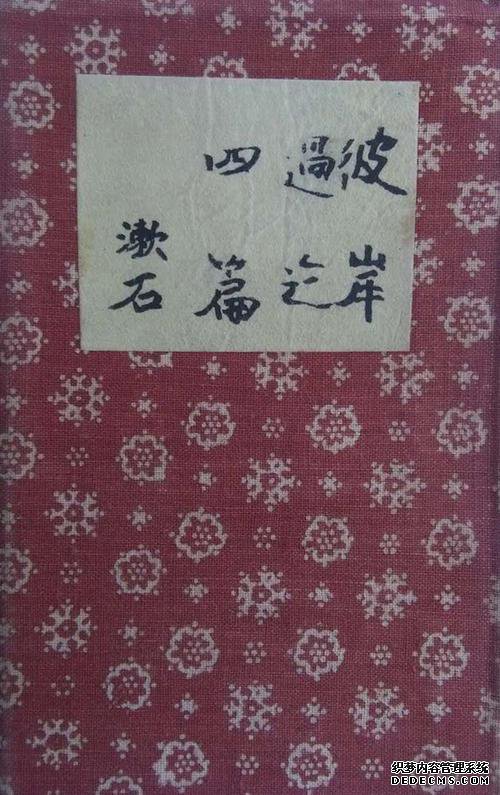 彼岸
過迄
四篇
漱石
织梦内容管理系统
DEDECMS.COM